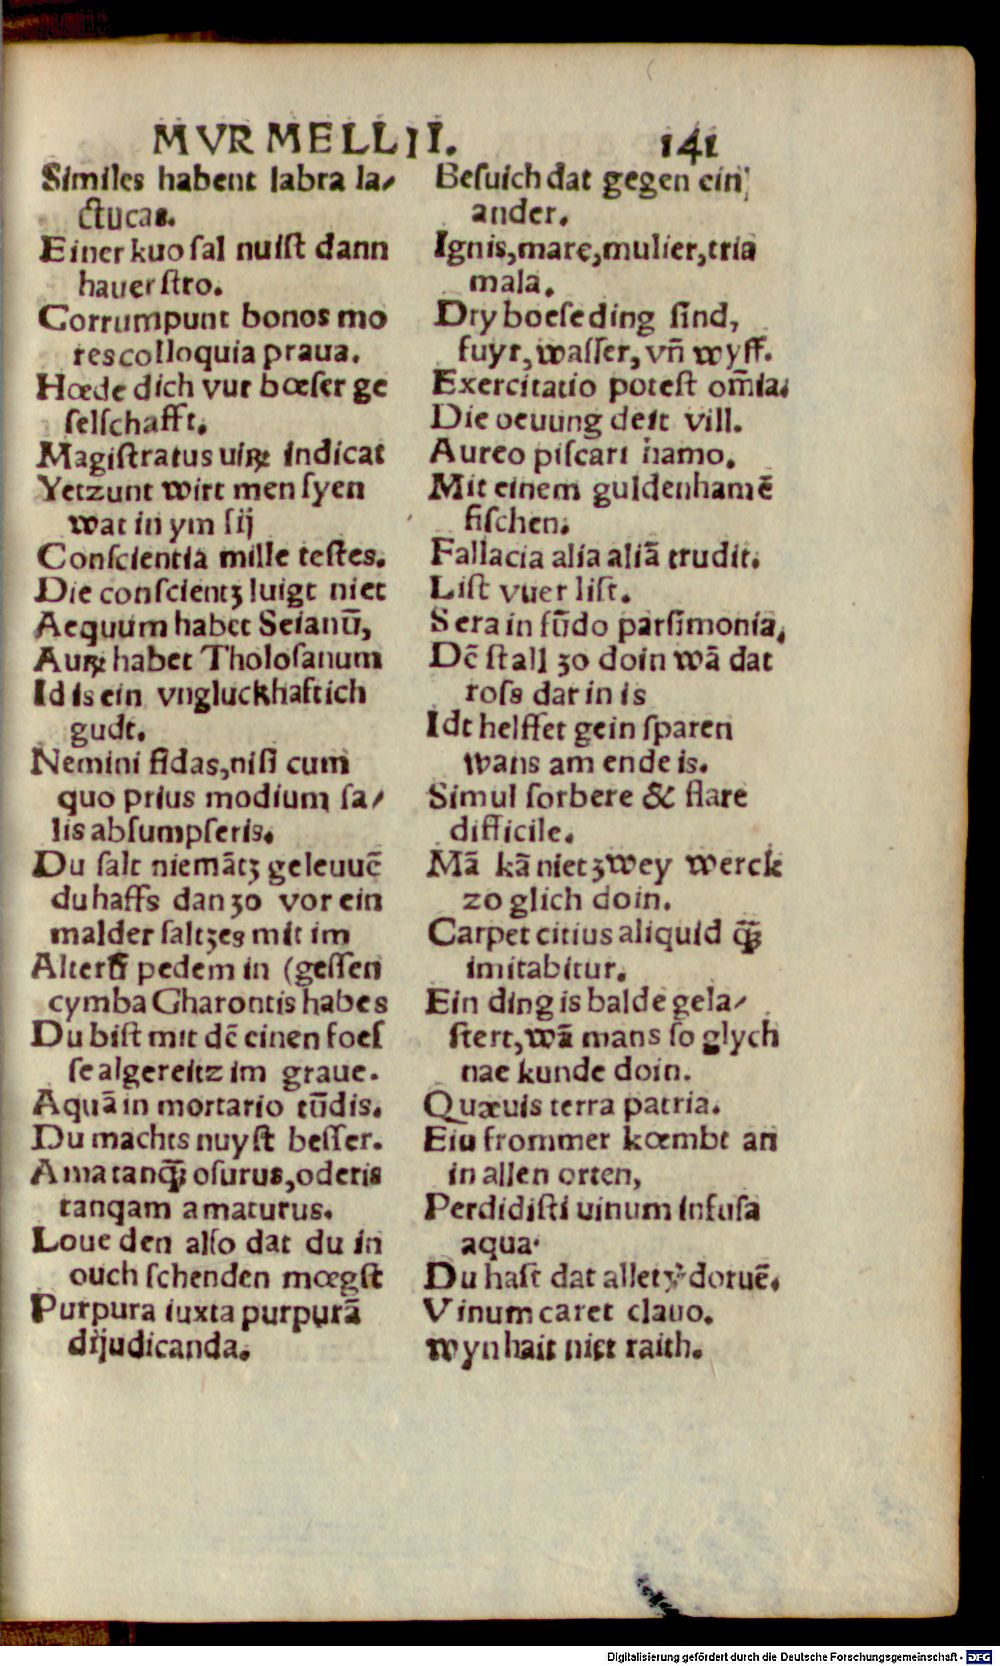 MVRMELLII. 141
Similes habent labra la⸗
ctucas.
Einer kuo ſal nuiſt dann
hauer ſtro.
Corrumpunt bonos mo
res colloquia praua.
Hœde dich vur bœſer ge
ſelſchafft.
Magiſtratus uiꝝ indicat
Yetzunt wirt men ſyen
wat in ym ſij
Conſcientia mille teſtes.
Die conſcientʒ luigt niet
Aequum habet Seianū,
Auꝝ habet Tholoſanum
Id is ein vngluckhaftich
gudt.
Nemini fidas, niſi cum
quo prius modium ſa⸗
lis abſumpſeris.
Du ſalt niemātʒ geleuuē
du haffs dan ʒo vor ein
malder ſaltʒes mit im
Alterū pedem in (geſſen
cymba Charontis habes
Du biſt mit dē einen foeſ
ſe algereitz im graue.
Aquā in mortario tūdis.
Du machts nuyſt beſſer.
Ama tanq̄ȝ oſurus, oderis
tanqam amaturus.
Loue den alſo dat du in
ouch ſchenden mœgſt
Purpura iuxta purpurā
dijudicanda.
Beſuich dat gegen ein
ander.
Ignis, mare, mulier, tria
mala.
Dry boeſe ding ſind,
fuyr, waſſer, vn̄ wyff.
Exercitatio poteſt om̄ia.
Die oeuung deit vill.
Aureo piſcari hamo.
Mit einem guldenhamē
fiſchen.
Fallacia alia aliā trudit.
Liſt vuer liſt.
Sera in fūdo parſimonia,
Dē ſtall ʒo doin wā dat
roſs dar in is
Idt helffet gein ſparen
wans am ende is.
Simul ſorbere & flare
difficile.
Mā kā niet ʒwey werck
zo glich doin.
Carpet citius aliquid q̄ȝ
imitabitur.
Ein ding is balde gela⸗
ſtert, wā mans ſo glych
nae kunde doin.
Quæuis terra patria.
Eiu frommer kœmbt an
in allen orten,
Perdidiſti uinum infuſa
aqua.
Du haſt dat allet doruē.
Vinum caret clauo.
wyn hait niet raith.
Digitalisierung gefördert durch die Deutsche Forschungsgemeinschaft - DFG